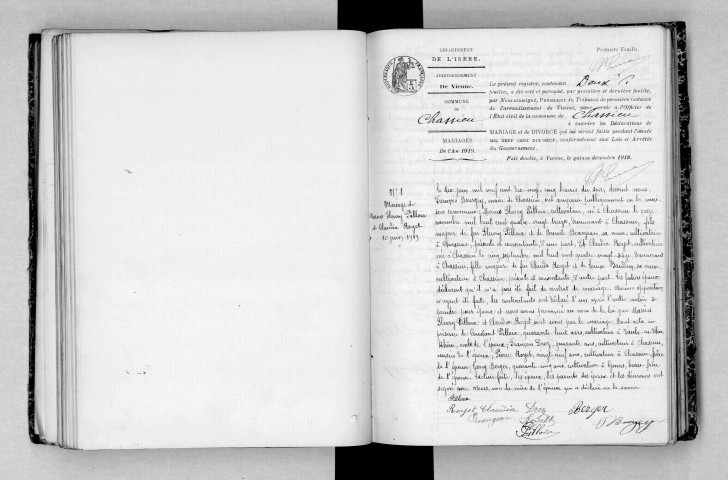 Première Feuille.
DÉPARTEMENT
DE L'ISÈRE.
ARRONDISSEMENT
De Vienne.
COMMUNE
de
Chassieu
MARIAGES
De l'An 1919.
Le présent registre, contenant Deux
feuilles, a été coté et paraphé, par première et dernière feuille,
par Nous soussigné, Président du Tribunal de première instance
de l'arrondissement de Vienne, pour servir à l'Officier de
l'État civil de la commune de Chassieu
à inscrire les Déclarations de
MARIAGE et de DIVORCE qui lui seront faites pendant l'année
MIL NEUF CENT DIX-NEUF, conformément aux Lois et Arrêtés
du Gouvernement.
Fait double, à Vienne, le quinze décembre 1918.
N° 1
Mariage de
Marius Fleury Pilloix
et Claudia Royet
10 juin 1919
Le dix juin mil neuf cent dix neuf, cinq heures du soir, devant nous,
François maire de Chassieu, ont comparu publiquement en la mai-
son commune Marius Fleury cultivateur, né à Chassieu le onze
novembre mil huit cent quatre vingt treize, demeurant à Chassieu, fils
majeur de feu Fleury et de sa veuve, cultivatrice
à Chassieu, présente et consentante, d'une part. Et Claudia Royet, cultivatrice
née à Chassieu le cinq septembre mil huit cent quatre vingt demeurant
à Chassieu, fille majeure de feu Claude Royet et de sa veuve
cultivatrice à Chassieu, présente et consentante, d'autre part. Les futurs époux
déclarent qu'il n'a pas été fait de contrat de mariage. Aucune opposition
n'ayant été faite, les contractants ont déclaré l'un après l'autre vouloir se
prendre pour époux et nous avons prononcé au nom de la loi que Marius
Fleury et Claudia Royet sont unis par le mariage. Dont acte en
présence de quarante huit ans, cultivateur à Vaulx-en-Velin
Rhône, oncle de l'époux, François quarante ans, cultivateur à Chassieu,
cousin de l'époux, Pierre Royet, vingt-neuf ans, cultivateur à Chassieu, frère
de l'épouse, Berger, quarante cinq ans, cultivateur à Genas, beau-frère
de l'épouse. Lecture faite, les époux, les parents des époux et les témoins ont
signé avec nous, non la mère de l'épouse qui a déclaré ne le savoir
Royet Claudia
Berger